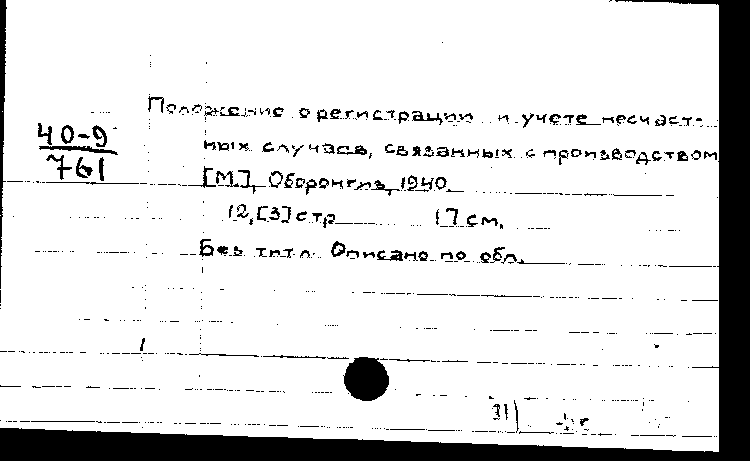 Положение о регистрации и учете несчаст-
40-9
761
ных случаев, связанных с производством
[М.], Оборонгиз, 1940.
12,[3] стр 17 см.
Без титл. Описано по обл.
31